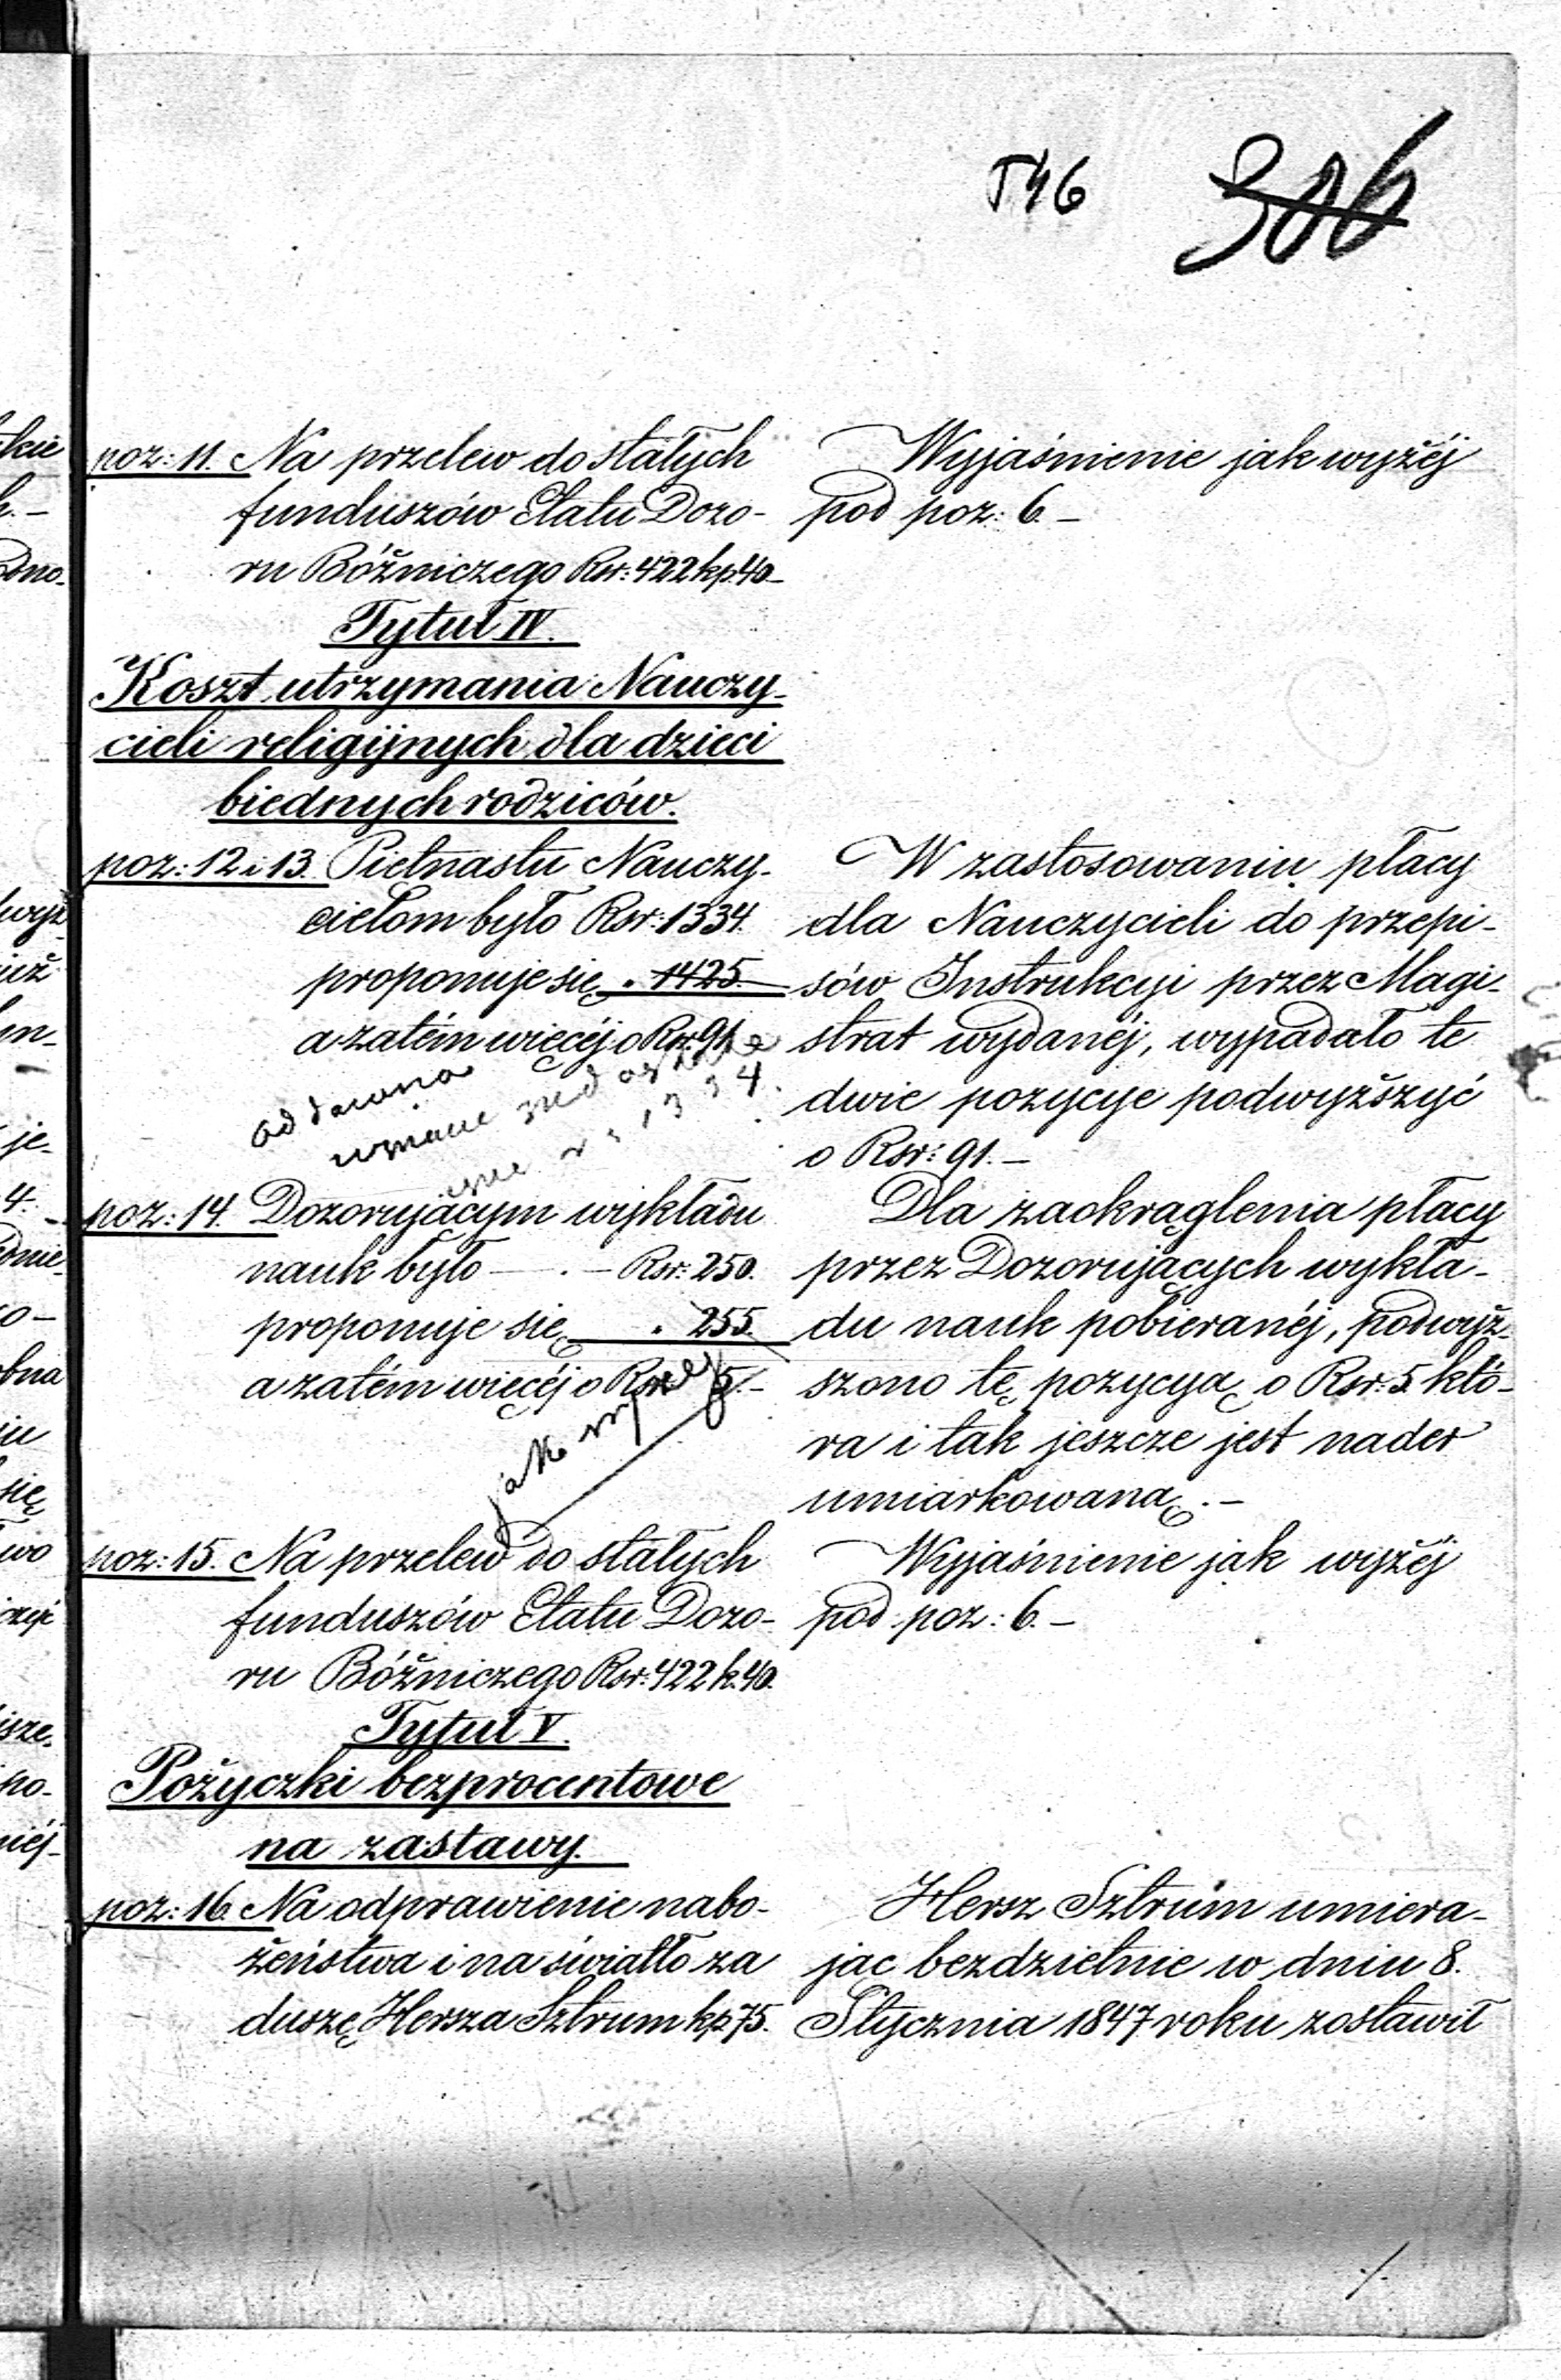 546 306
poz: 11. Na przelew do stałych
funduszów Etatu Dozo-
ru Bóżniczego Rsr: 422 kp. 40.
Wyjaśnienie jak wyżéj
pod poz: 6.—
Tytuł IV.
Koszt utrzymania Nauczy-
cieli religijnych dla dzieci
biednych rodziców.
poz: 12 i 13. Pietnastu Nauczy-
cielom było Rsr: 1334.
proponuje się „ 1425.
a zatém więcéj o Rsr: 91.
od dawna
uznane
1334.
W zastosowaniu płacy
dla Nauczycieli do przepi-
sów Instrukcyi przez Magi-
strat wydanéj, wypadało te
dwie pozycye podwyższyć
o Rsr: 91.—
poz: 14. Dozorującym wykładu
nauk było — . — Rsr: 250.
proponuje się „ 255.
a zatém więcéj o Rsr: 5.—
jak wyżej
Dla zaokrąglenia płacy
przez Dozorujących wykła-
du nauk pobieranéj, podwyż-
szono tę pozycyą o Rsr: 5. któ-
ra i tak jeszcze jest nader
umiarkowaną.—
poz: 15. Na przelew do stałych
funduszów Etatu Dozo-
ru Bóżniczego Rsr: 422 k. 40.
Wyjaśnienie jak wyżéj
pod poz: 6.—
Tytuł V.
Pożyczki bezprocentowe
na zastawy.
poz: 16. Na odprawienie nabo-
żeństwa i na światło za
duszę Hersza Sztrum kp 75.
Hersz Sztrum umiera-
jąc bezdzietnie w dniu 8.
Stycznia 1847 roku zostawił
./.